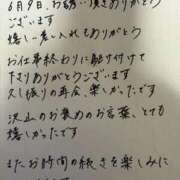 6月9日、お誘い頂きありがとう
ございます
嬉しい差し入れもありがとう
お仕事終わりに駆け付けて
下さりありがとうございます
久し振りの再会、楽しかった
沢山のお褒めのお言葉、とても
嬉しかったです
またお時間の続きを楽しみに